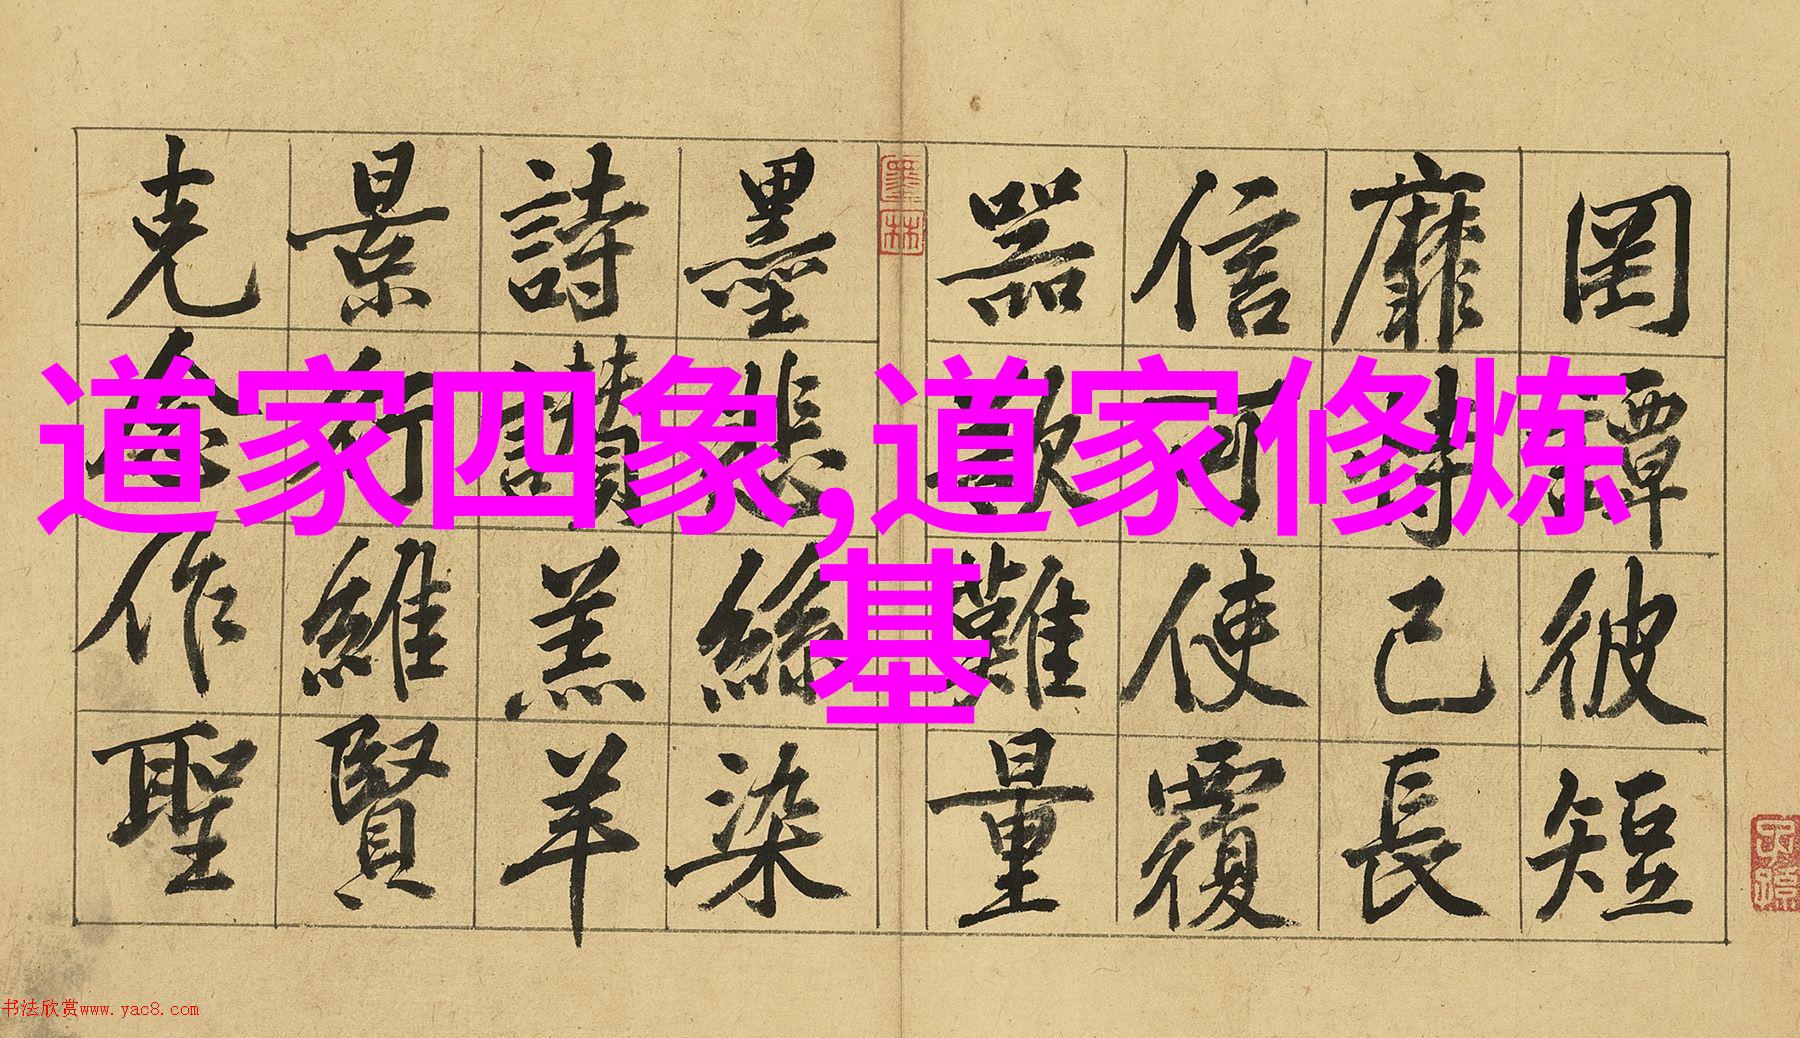 道家四象,道家修炼
基
罔譚彼短
靡恃己長
信可使覆
器欲難量
墨悲絲染
詩讚羔羊
景行維賢
克念作聖
墨林
书法欣赏www.yac8.com